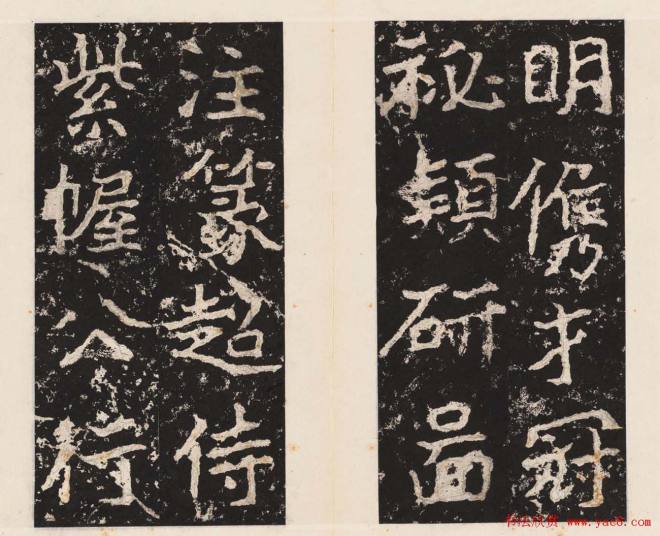 明儁才冠
祕穎研啚
注篆超侍
紫幄公行
书法欣赏 www.yac8.com